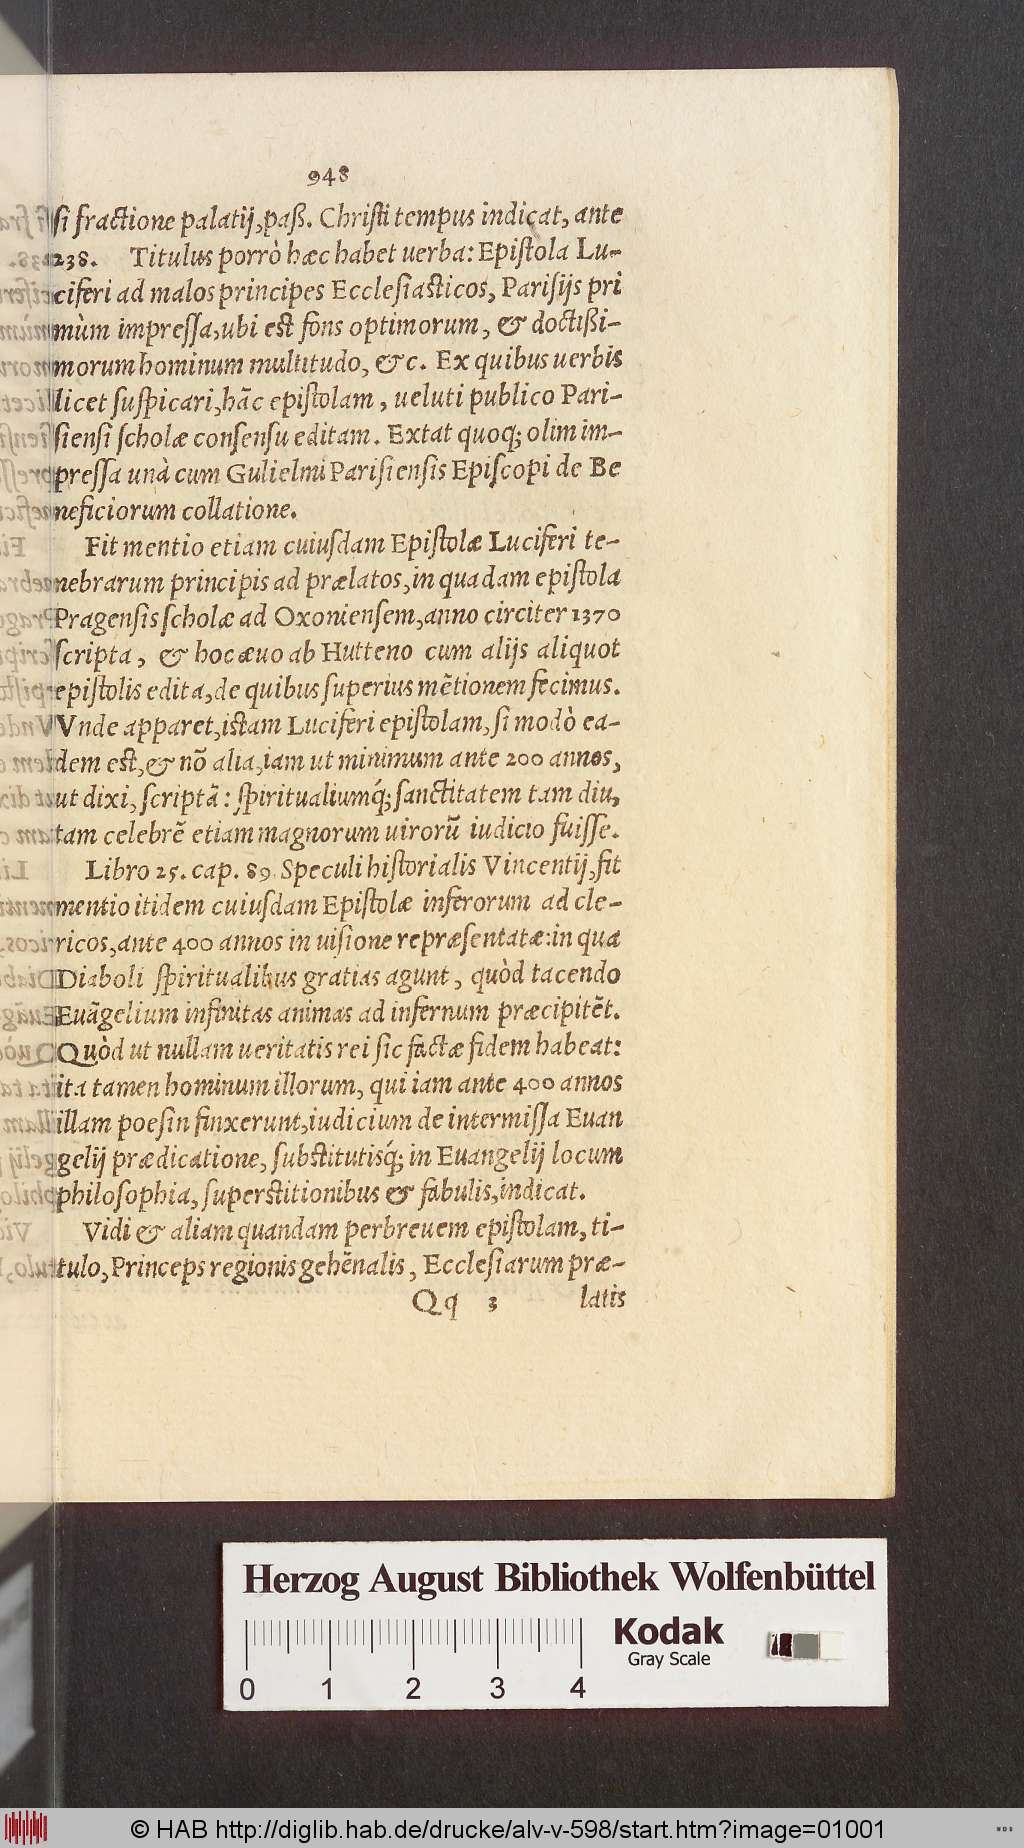 948
si fractione palatij, paß. Christi tempus indicat, ante
238. Titulus porrò hæc habet uerba: Epistola Lu-
ciferi ad malos principes Ecclesiasticos, Parisijs pri
mùm impressa, ubi est fons optimorum, & doctißi-
morum hominum multitudo, &c. Ex quibus uerbis
licet suspicari, hãc epistolam, ueluti publico Pari-
siensi scholæ consensu editam. Extat quoq; olim im-
pressa unà cum Gulielmi Parisiensis Episcopi de Be
neficiorum collatione.
Fit mentio etiam cuiusdam Epistolæ Luciferi te-
nebrarum principis ad prælatos, in quadam epistola
Pragensis scholæ ad Oxoniensem, anno circiter 1370
scripta, & hoc æuo ab Hutteno cum alijs aliquot
epistolis edita, de quibus superius mẽtionem fecimus.
Vnde apparet, istam Luciferi epistolam, si modò ea-
dem est, & nõ alia, iam ut minimum ante 200 annos,
ut dixi, scriptã: spiritualiumq́; sanctitatem tam diu,
tam celebrẽ etiam magnorum uirorũ iudicio fuisse.
Libro 25. cap. 89. Speculi historialis Vincentij, fit
mentio itidem cuiusdam Epistolæ inferorum ad cle-
ricos, ante 400 annos in uisione repræsentatæ: in qua
Diaboli spiritualibus gratias agunt, quòd tacendo
Euãgelium infinitas animas ad infernum præcipitẽt.
Quòd ut nullam ueritatis rei sic factæ fidem habeat:
ita tamen hominum illorum, qui iam ante 400 annos
illam poesin finxerunt, iudicium de intermissa Euan
gelij prædicatione, substitutisq́; in Euangelij locum
philosophia, superstitionibus & fabulis, indicat.
Vidi & aliam quandam perbreuem epistolam, ti-
tulo, Princeps regionis gehẽnalis, Ecclesiarum præ-
Qq 3 latis
Herzog August Bibliothek Wolfenbüttel
Kodak
Gray Scale
0 1 2 3 4
© HAB http://diglib.hab.de/drucke/alv-v-598/start.htm?image=01001